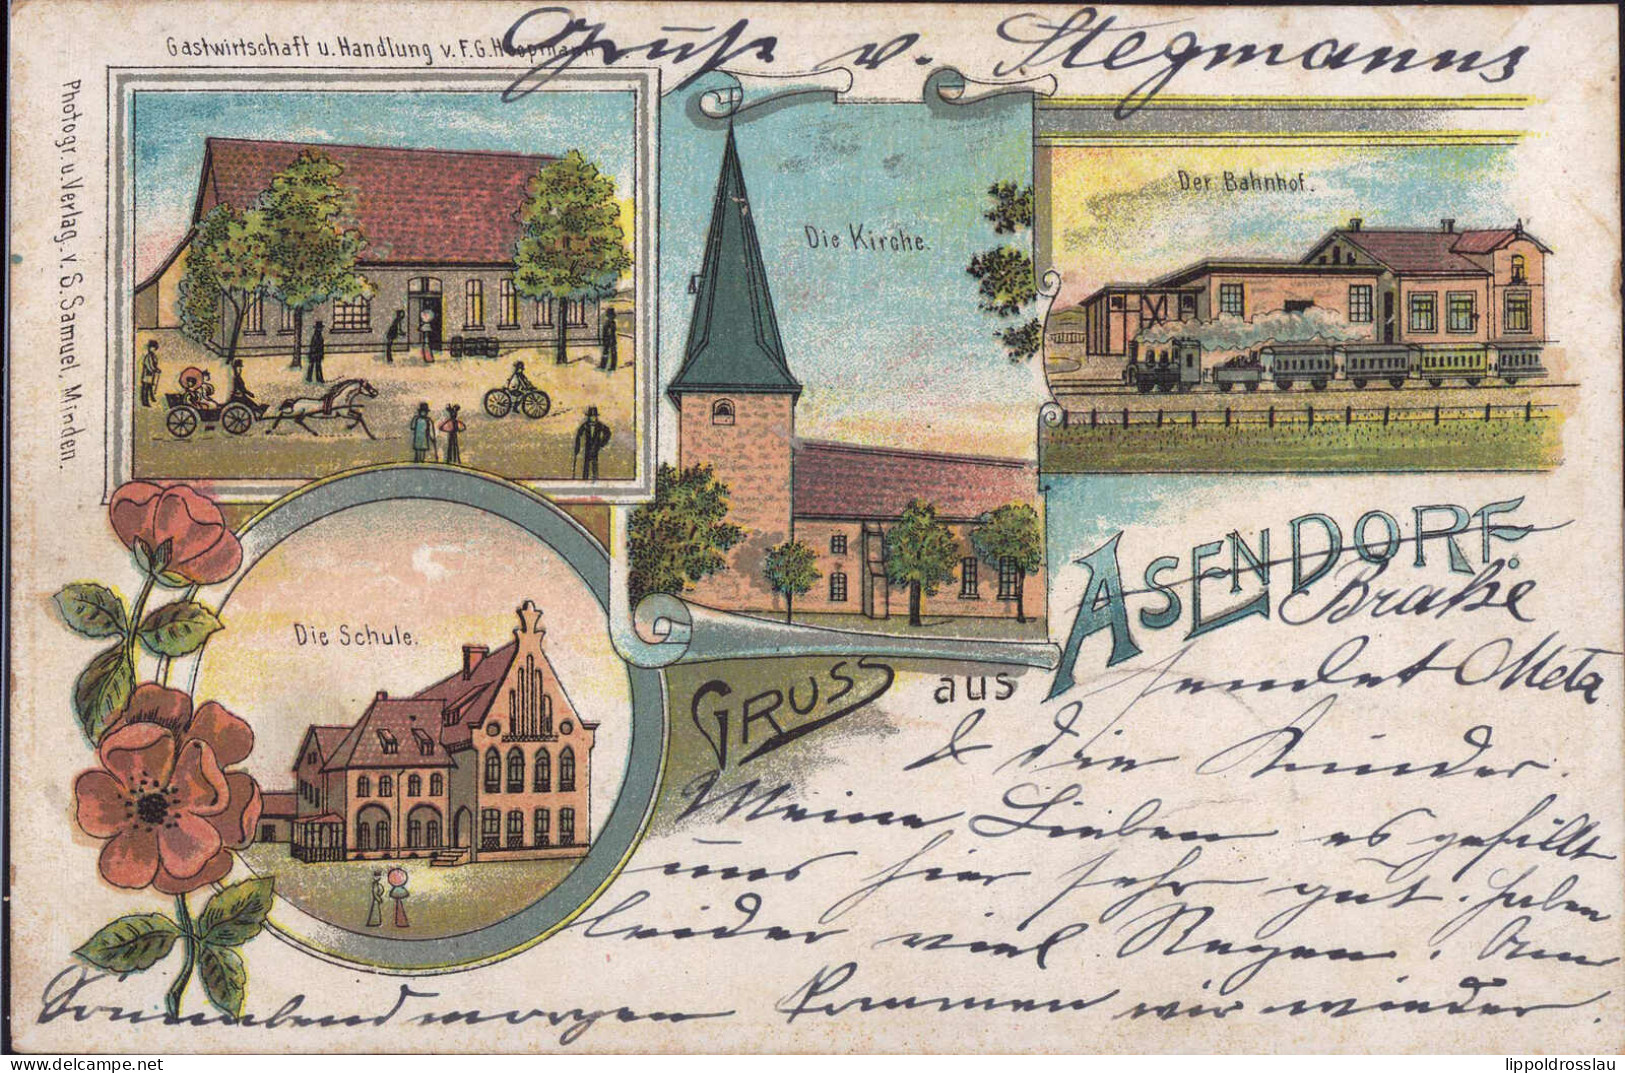 Gruß v. Stegmanns
Gastwirtschaft u. Handlung v. F.G. Hoopmann
Photogr. u. Verlag. v. S. Samuel, Minden.
Die Kirche.
Der Bahnhof.
Die Schule.
GRUSS aus ASENDORF.
Brake
sendet Meta
& die Kinder.
Meine Lieben es gefällt
uns hier sehr gut. haben
leider viel Regen. Am
Sonnabendmorgen kommen wir wieder.
delcampe.net
lippoldrosslau